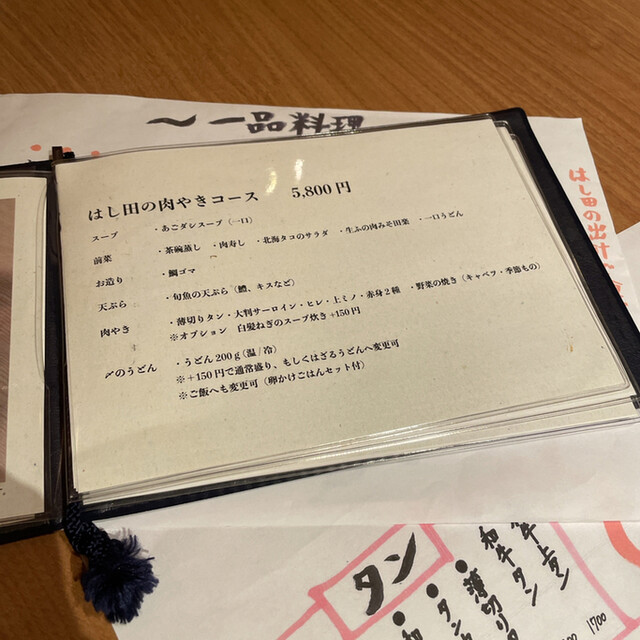 〜一品料理
はし田の肉やきコース 5,800円
スープ ・あごダシスープ（一口）
前菜 ・茶碗蒸し ・肉寿し ・北海タコのサラダ ・生ふの肉みそ田楽 ・一口うどん
お造り ・鯛ゴマ
天ぷら ・旬魚の天ぷら（鱧、キスなど）
肉やき ・薄切りタン・大判サーロイン・ヒレ・上ミノ・赤身2種 ・野菜の焼き（キャベツ・季節もの）
※オプション 白髪ねぎのスープ炊き+150円
〆のうどん ・うどん200g（温/冷）
※+150円で通常盛り、もしくはざるうどんへ変更可
※ご飯へも変更可（卵かけごはんセット付）
はし田の出汁で
タン
和牛上タン
和牛タン
●薄切り
●タン
1700